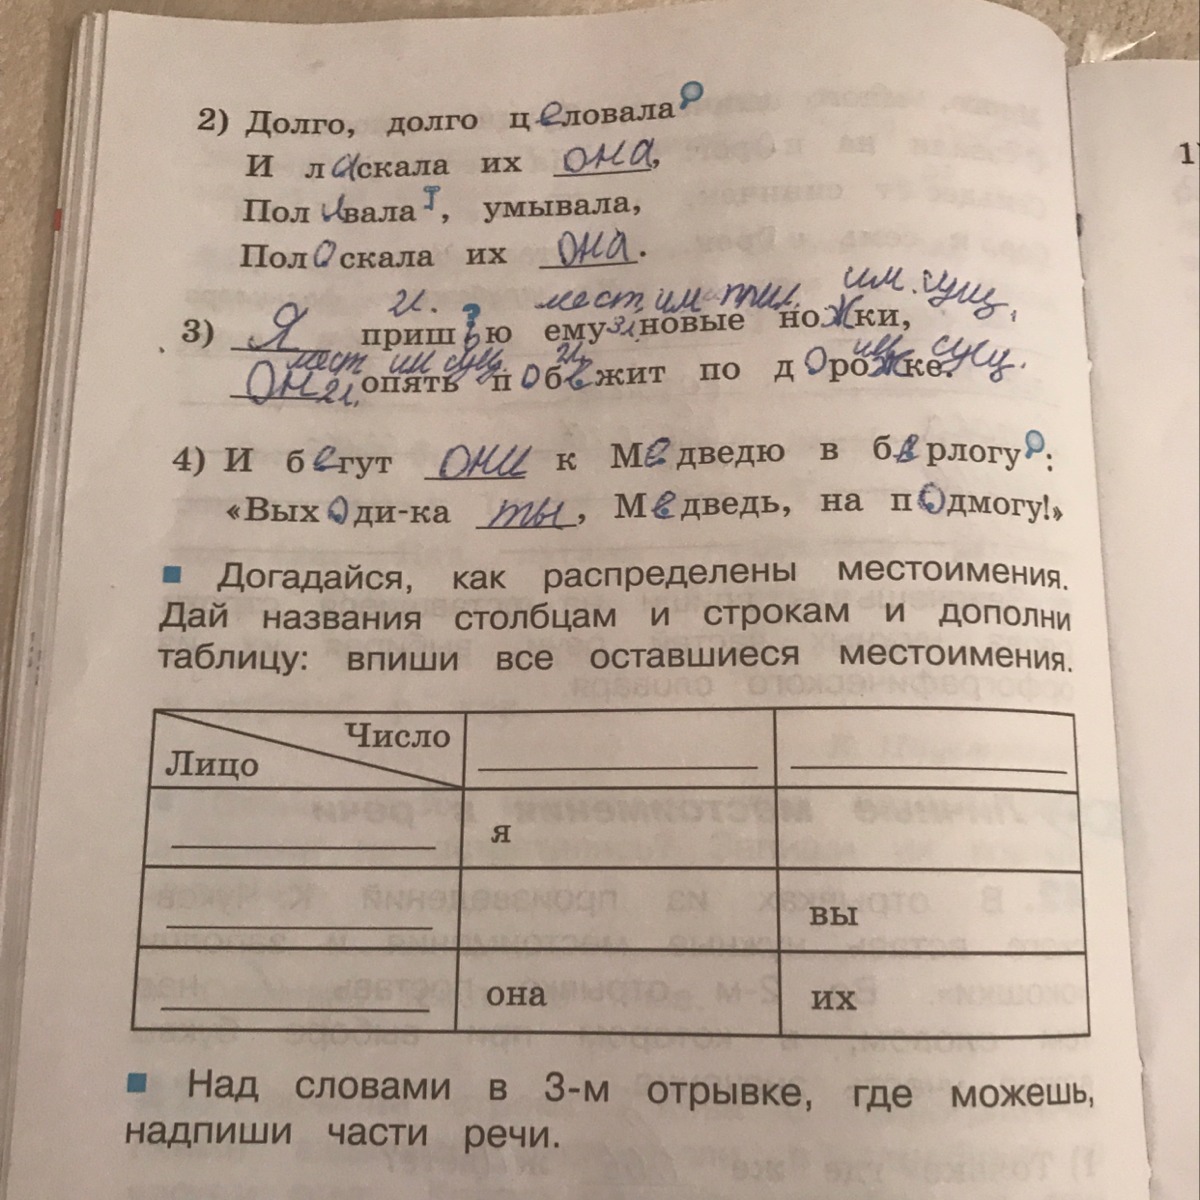 2) Долго, долго целовала
И ласкала их она,
Поливала, умывала,
Полоскала их она.
гл. мест. им. прил. им. сущ.
3) Я пришью ему новые ножки,
мест им сущ гл. им сущ.
Он опять побежит по дорожке.
гл.
4) И бегут они к Медведю в берлогу:
«Выходи-ка ты, Медведь, на подмогу!»
Догадайся, как распределены местоимения.
Дай названия столбцам и строкам и дополни
таблицу: впиши все оставшиеся местоимения.
Число
Лицо
я
вы
она их
Над словами в 3-м отрывке, где можешь,
надпиши части речи.
1)